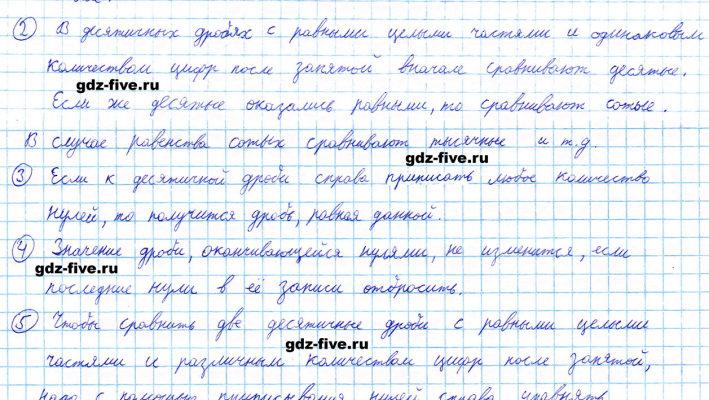 ② В десятичных дробях с равными целыми частями и одинаковым
количеством цифр после запятой вначале сравнивают десятые.
gdz-five.ru
Если же десятые оказались равными, то сравнивают сотые.
В случае равенства сотых сравнивают тысячные и т.д.
gdz-five.ru
③ Если к десятичной дроби справа приписать любое количество
нулей, то получится дробь, равная данной.
④ Значение дроби, оканчивающейся нулями, не изменится, если
gdz-five.ru
последние нули в её записи отбросить.
⑤ Чтобы сравнить две десятичные дроби с равными целыми
gdz-five.ru
частями и различным количеством цифр после запятой,
надо с помощью приписывания нулей справа уравнять